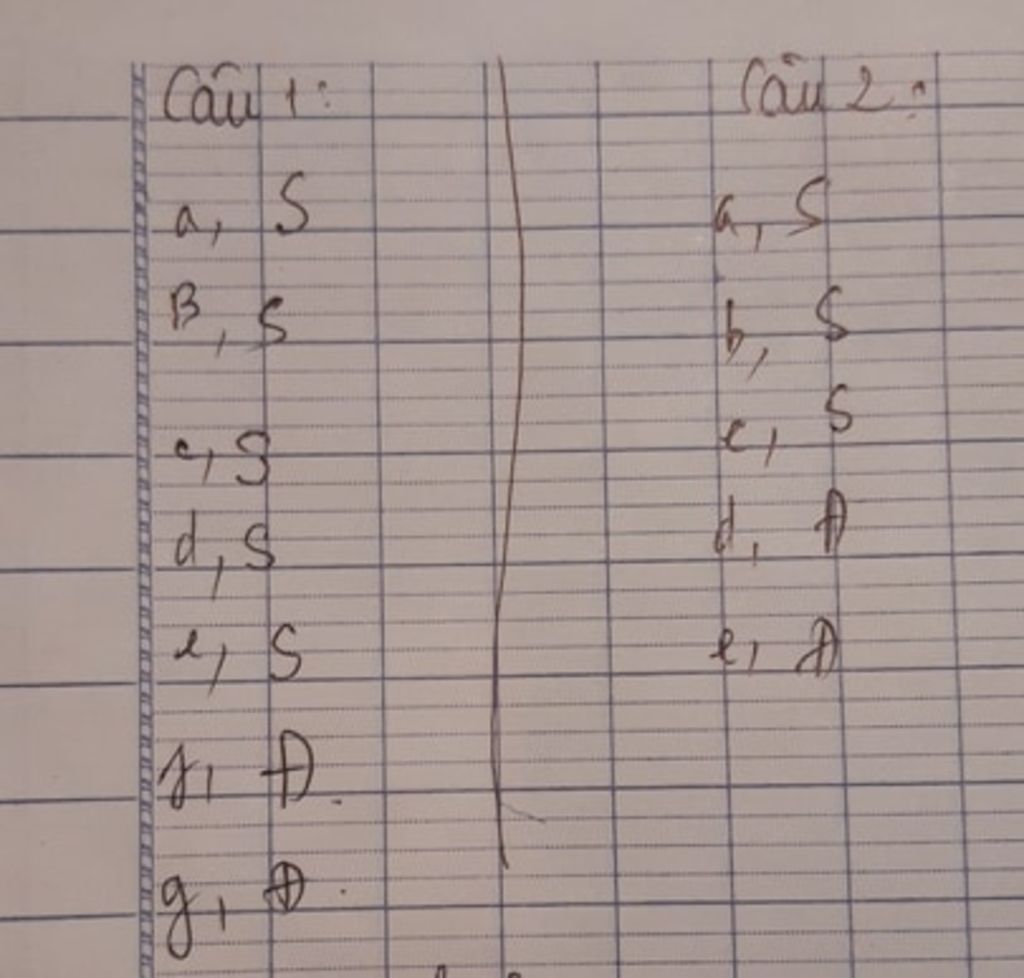 Câu 1:
a, S
B, S
c, S
d, S
e, S
f, Đ.
g, Đ.
Câu 2:
a, S
b, S
c, S
d, Đ
e, Đ